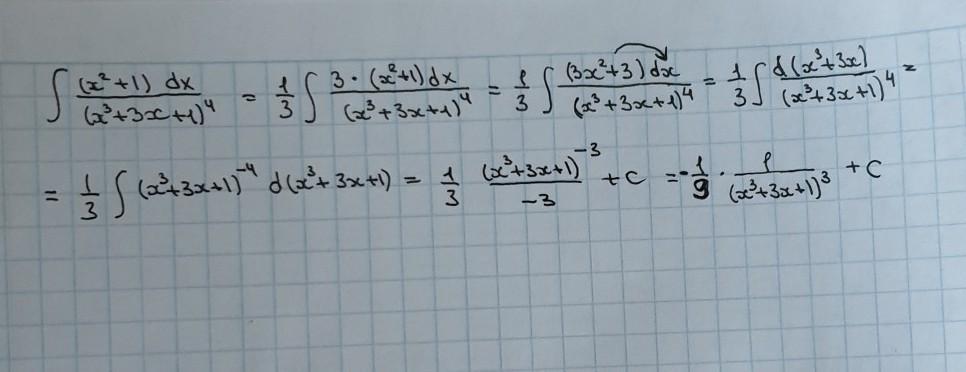 ∫ (x²+1) dx / (x³+3x+1)⁴ = 1/3 ∫ 3·(x²+1)dx / (x³+3x+1)⁴ = 1/3 ∫ (3x²+3)dx / (x³+3x+1)⁴ = 1/3 ∫ d(x³+3x) / (x³+3x+1)⁴ =
= 1/3 ∫ (x³+3x+1)⁻⁴ d(x³+3x+1) = 1/3 (x³+3x+1)⁻³ / -3 + c = -1/9 · 1 / (x³+3x+1)³ + C